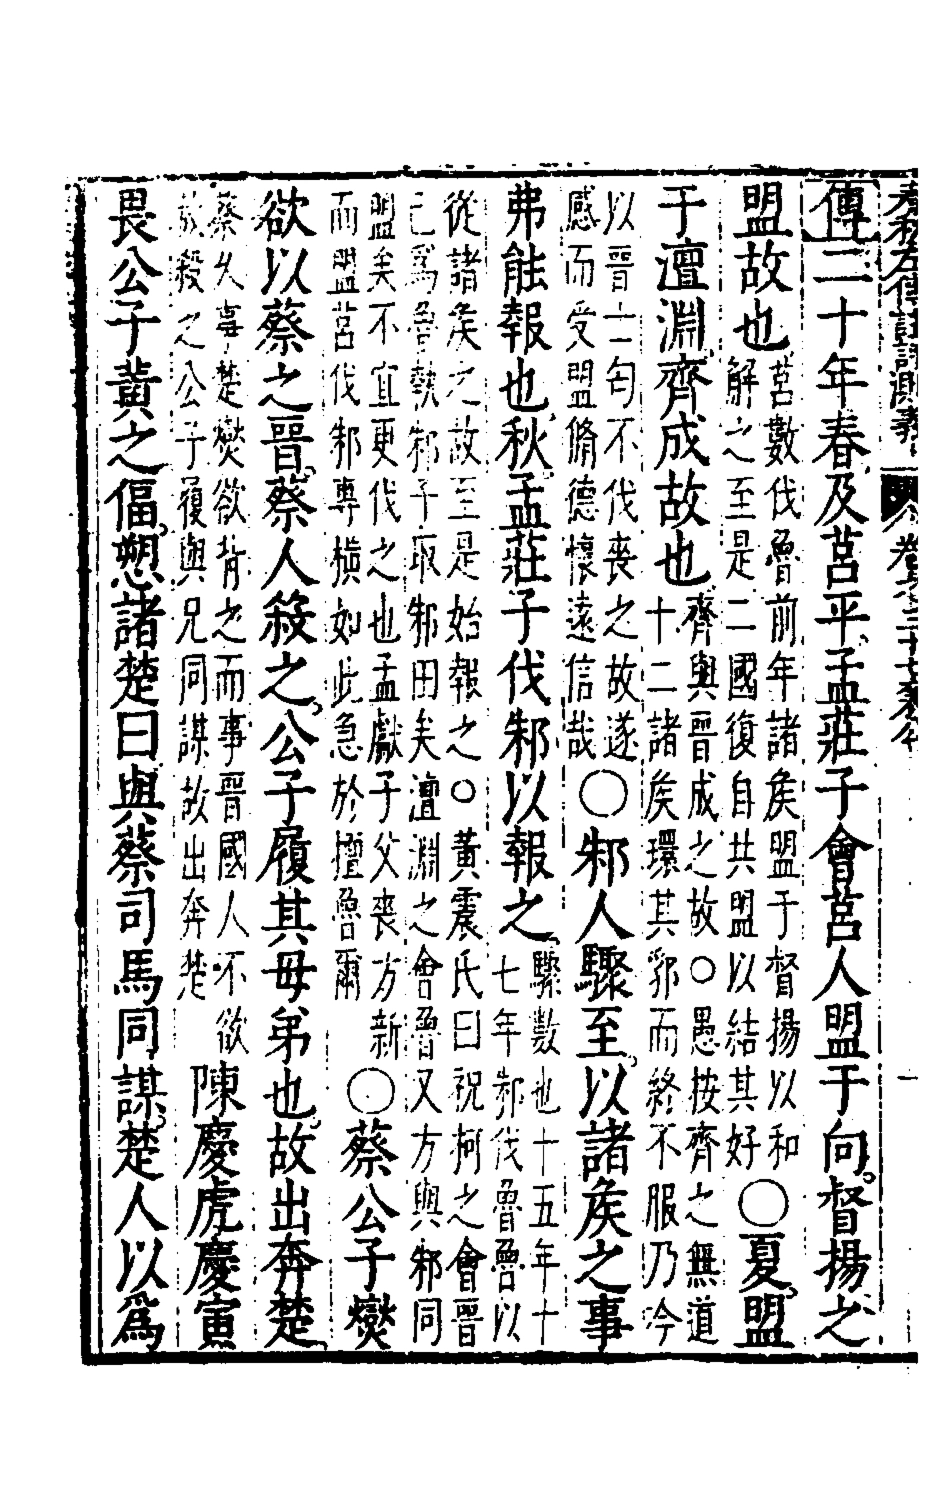 春秋左傳註評測義 卷之三十七襄公 一
傳二十年春及莒平孟莊子會莒人盟于向督揚之
盟故也
莒數伐魯前年諸矦盟于督揚以和
解之至是二國復自共盟以結其好
○夏盟
于澶淵齊成故也
齊與晉成之故○愚按齊之無道
十二諸矦環其郛而終不服乃今
以晉士匄不伐喪之故遂
感而受盟脩德懷遠信哉
○邾人驟至以諸矦之事
弗能報也秋孟莊子伐邾以報之
驟數也十五年十
七年邾伐魯魯以
從諸矦之故至是始報之○黃震氏曰祝柯之會晉
已爲魯執邾子取邾田矣澶淵之會魯又方與邾同
盟矣不宜更伐之也孟獻子父喪方新
而盟莒伐邾專橫如此急於擅魯爾
○蔡公子燮
欲以蔡之晉蔡人殺之公子履其母弟也故出奔楚
蔡久事楚燮欲背之而事晉國人不欲
故殺之公子履與兄同謀故出奔楚
陳慶虎慶寅
畏公子黃之偪愬諸楚曰與蔡司馬同謀楚人以爲